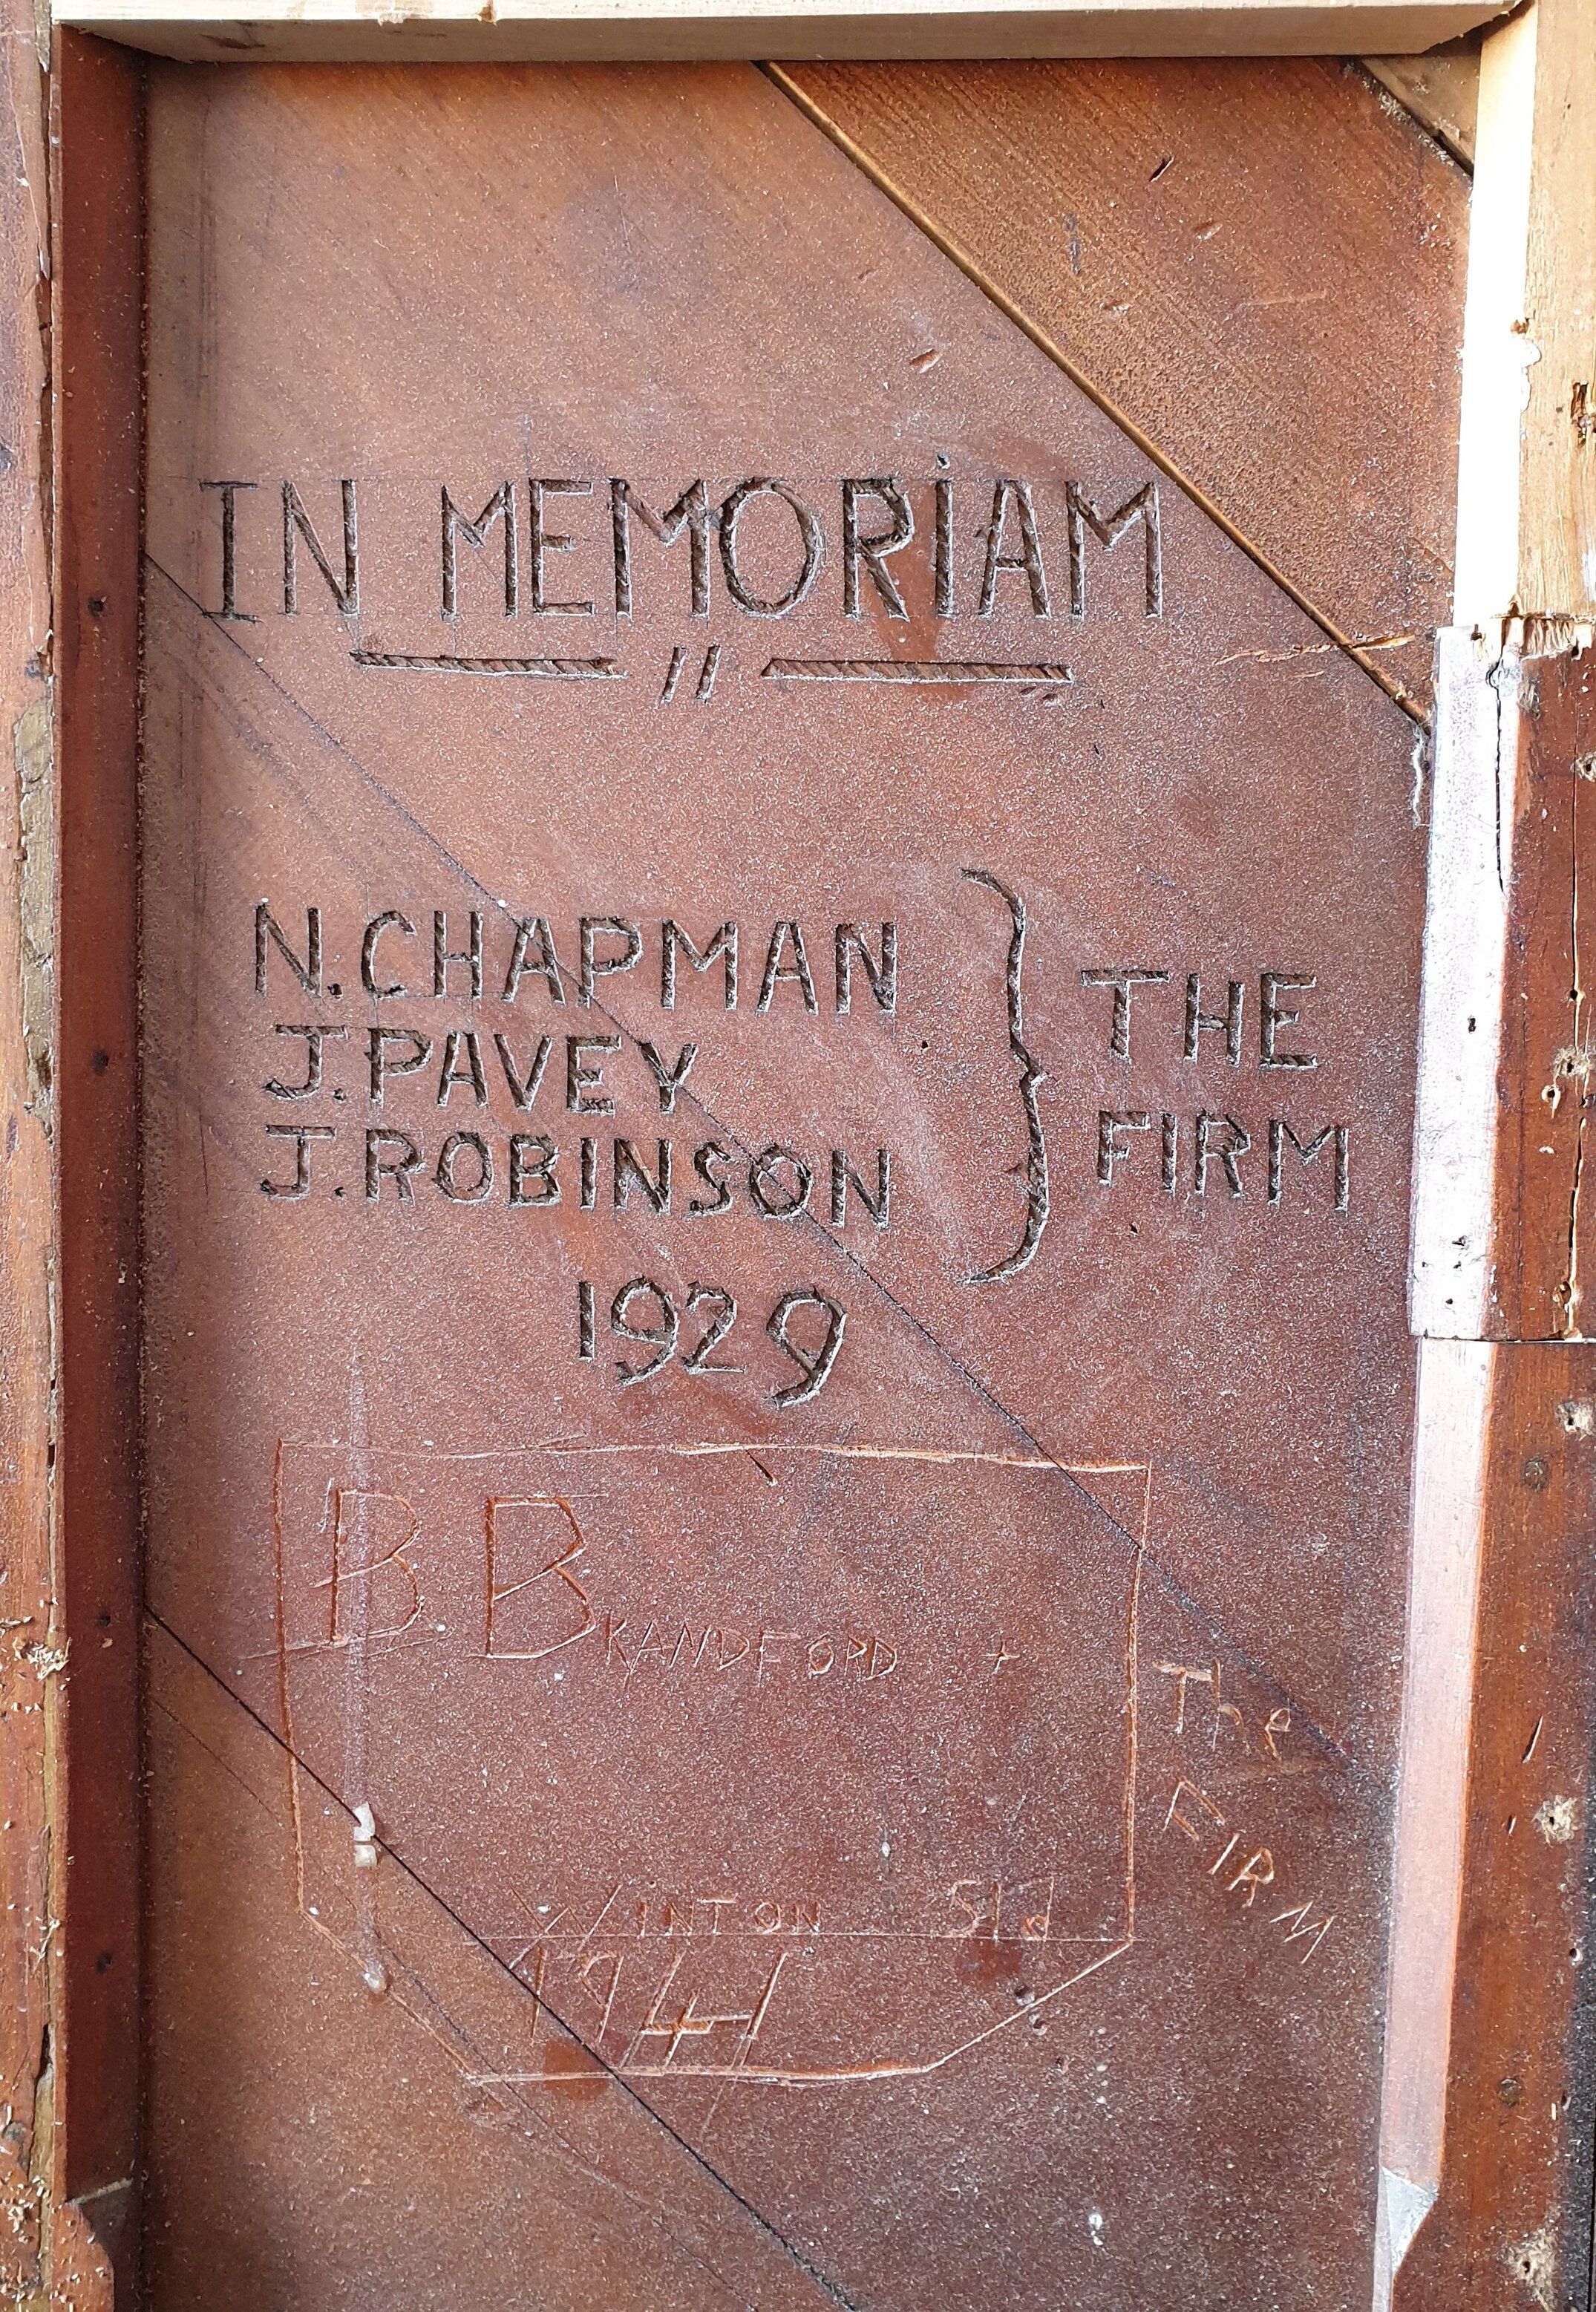 IN MEMORiAM
— " —
N. CHAPMAN
J. PAVEY
J. ROBINSON
} THE
FIRM
1929
B. BKANDFORD +
The
FIRM
WINTON Sld
1941